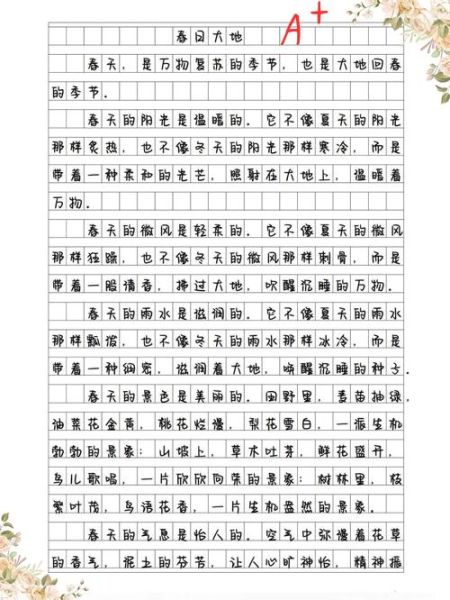 春日大地
A+
春天，是万物复苏的季节，也是大地回春
的季节．
春天的阳光是温暖的．它不像夏天的阳光
那样炙热，也不像冬天的阳光那样寒冷，而是
带着一种柔和的光芒，照射在大地上，温暖着
万物．
春天的微风是轻柔的．它不像夏天的微风
那样狂躁，也不像冬天的微风那样刺骨，而是
带着一股清香，拂过大地，吹醒沉睡的万物．
春天的雨水是滋润的．它不像夏天的雨水
那样瓢泼，也不像冬天的雨水那样冰冷，而是
带着一种绸密，滋润着大地，唤醒沉睡的种子．
春天的景色是美丽的．田野里，麦苗抽绿，
油菜花金黄，桃花烂漫，梨花雪白，一派生机
勃勃的景象；山坡上，草木吐芽，鲜花盛开，
鸟儿歌唱，一片欣欣向荣的景象；树林里，枝
繁叶茂，鸟语花香，一片生机盎然的景象．
春天的气息是怡人的．空气中弥漫着花草
的香气，泥土的芬芳，让人心旷神怡，精神振